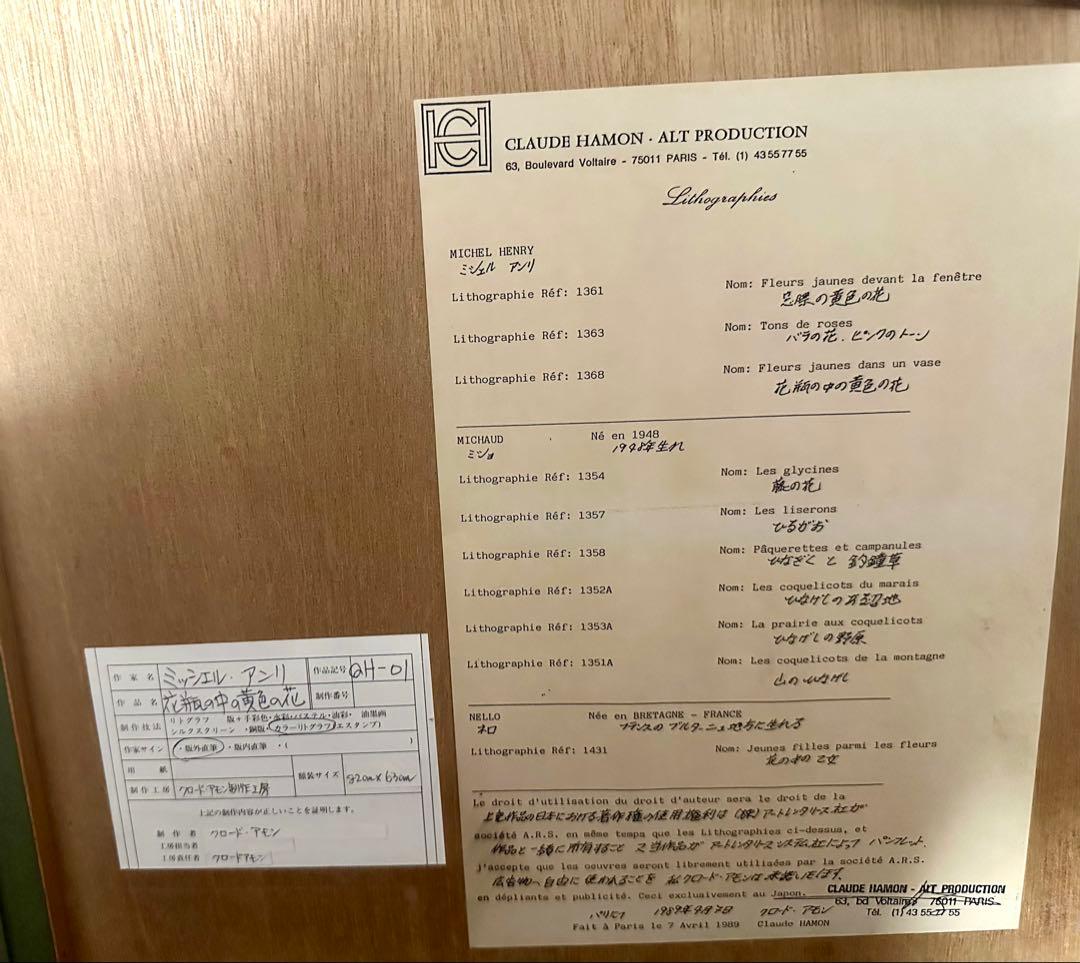 CLAUDE HAMON · ALT PRODUCTION
63, Boulevard Voltaire - 75011 PARIS - Tél. (1) 43 55 77 55
Lithographies
MICHEL HENRY
ミシェル アンリ
Lithographie Réf: 1361
Nom: Fleurs jaunes devant la fenêtre
の黄色の花
Lithographie Réf: 1363
Nom: Tons de roses
バラの花、ピンクのトーン
Lithographie Réf: 1368
Nom: Fleurs jaunes dans un vase
花瓶の中の黄色の花
MICHAUD Né en 1948
ミショ 1948年生れ
Lithographie Réf: 1354
Nom: Les glycines
藤の花
Lithographie Réf: 1357
Nom: Les liserons
ひるがお
Lithographie Réf: 1358
Nom: Pâquerettes et campanules
ひなぎくと釣鐘草
Lithographie Réf: 1352A
Nom: Les coquelicots du marais
ひなげしの
Lithographie Réf: 1353A
Nom: La prairie aux coquelicots
ひなげしの野原
Lithographie Réf: 1351A
Nom: Les coquelicots de la montagne
山のひなげし
NELLO Née en BRETAGNE - FRANCE
ネロ フランスのブルターニュ地方に生れる
Lithographie Réf: 1431
Nom: Jeunes filles parmi les fleurs
花の中の乙女
Le droit d'utilisation du droit d'auteur sera le droit de la
上記作品の日本における著作権の使用権利は(株)アートレンタリース社が
société A.R.S. en même temps que les Lithographies ci-dessus, et
作品と一緒に所有すること 又当作品がアートレンタリースシステム社によって パンフレット、
j'accepte que les oeuvres seront librement utilisées par la société A.R.S.
広告物へ自由に使われることを 私クロード・アモンは承諾いたします。
en dépliants et publicité. Ceci exclusivement au Japon.
パリにて 1989年4月7日 クロード・アモン
Fait à Paris le 7 Avril 1989 Claude HAMON
CLAUDE HAMON - ALT PRODUCTION
63, bd Voltaire 75011 PARIS
Tél. (1) 43 55 77 55
作家名 ミッシェル・アンリ 作品記号 QH-01
作品名 花瓶の中の黄色の花 制作番号
制作技法 リトグラフ 版+手彩色・水彩・パステル・油彩・油墨画
シルクスクリーン ・銅版・カラーリトグラフ(エスタンプ)
作家サイン ・版外直筆 ・版内直筆 ・( )
用紙
制作工房 クロード・アモン制作工房 額装サイズ 82cm×63cm
上記の制作内容が正しいことを証明します。
制作者 クロード・アモン
工房担当者
工房責任者 クロードアモン